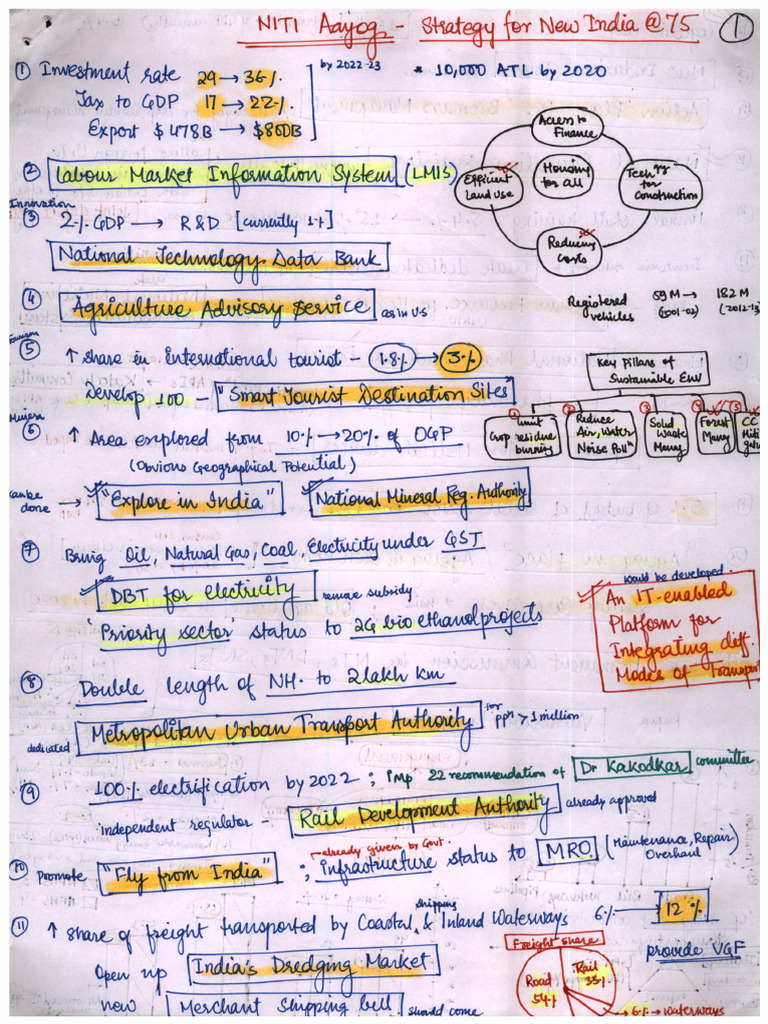 NITI Aayog - Strategy for New India @75
1
① Investment rate 29 → 36%
Tax to GDP 17 → 22%
Export $478B → $800B
by 2022-23
* 10,000 ATL by 2020
Access to Finance
Efficient Land use
Housing for all
Tech^gy for Construction
Reducing Costs
② Labour Market Information System (LMIS)
Innovation
③ 2% GDP → R&D [currently 1%]
National Technology Data Bank
④ Agriculture Advisory Service as in US
Registered vehicles 59M → 182M
(2001-02) (2012-13)
Tourism
⑤ ↑ share in international tourist - 1.8% → 3%
Develop 100 - "Smart Tourist Destination Sites"
Key Pillars of Sustainable Env
① Limit Crop residue burning
② Reduce Air, Water Noise Poll^n
③ Solid Waste Manag
④ Forest Manag
⑤ CC Miti gatn
Minera
⑥ ↑ Area explored from 10% → 20% of OGP
(Obvious Geographical Potential)
Can be done → "Explore in India" National Mineral Reg. Authority
⑦ Bring Oil, Natural Gas, Coal, Electricity under GST
DBT for electricity remove subsidy
'Priority sector' status to 2G bio ethanol projects
would be developed.
An IT-enabled
Platform for
Integrating diff.
Modes of Transport
⑧ Double length of NH. to 2 lakh km
dedicated Metropolitan Urban Transport Authority for pp^n > 1 million
⑨ 100% electrification by 2022 ; imp 22 recommendation of Dr Kakodkar committee
independent regulator - Rail Development Authority already approved
⑩ Promote "Fly from India" ; infrastructure status to MRO (Maintenance, Repair, Overhaul)
already given by Govt.
⑪ ↑ share of freight transported by Coastal shipping & Inland Waterways 6% → 12%
provide VGF
Open up India's Dredging Market
new Merchant Shipping bell should come
Freight share
Road 54%
Rail 33%
→ 6% → waterways